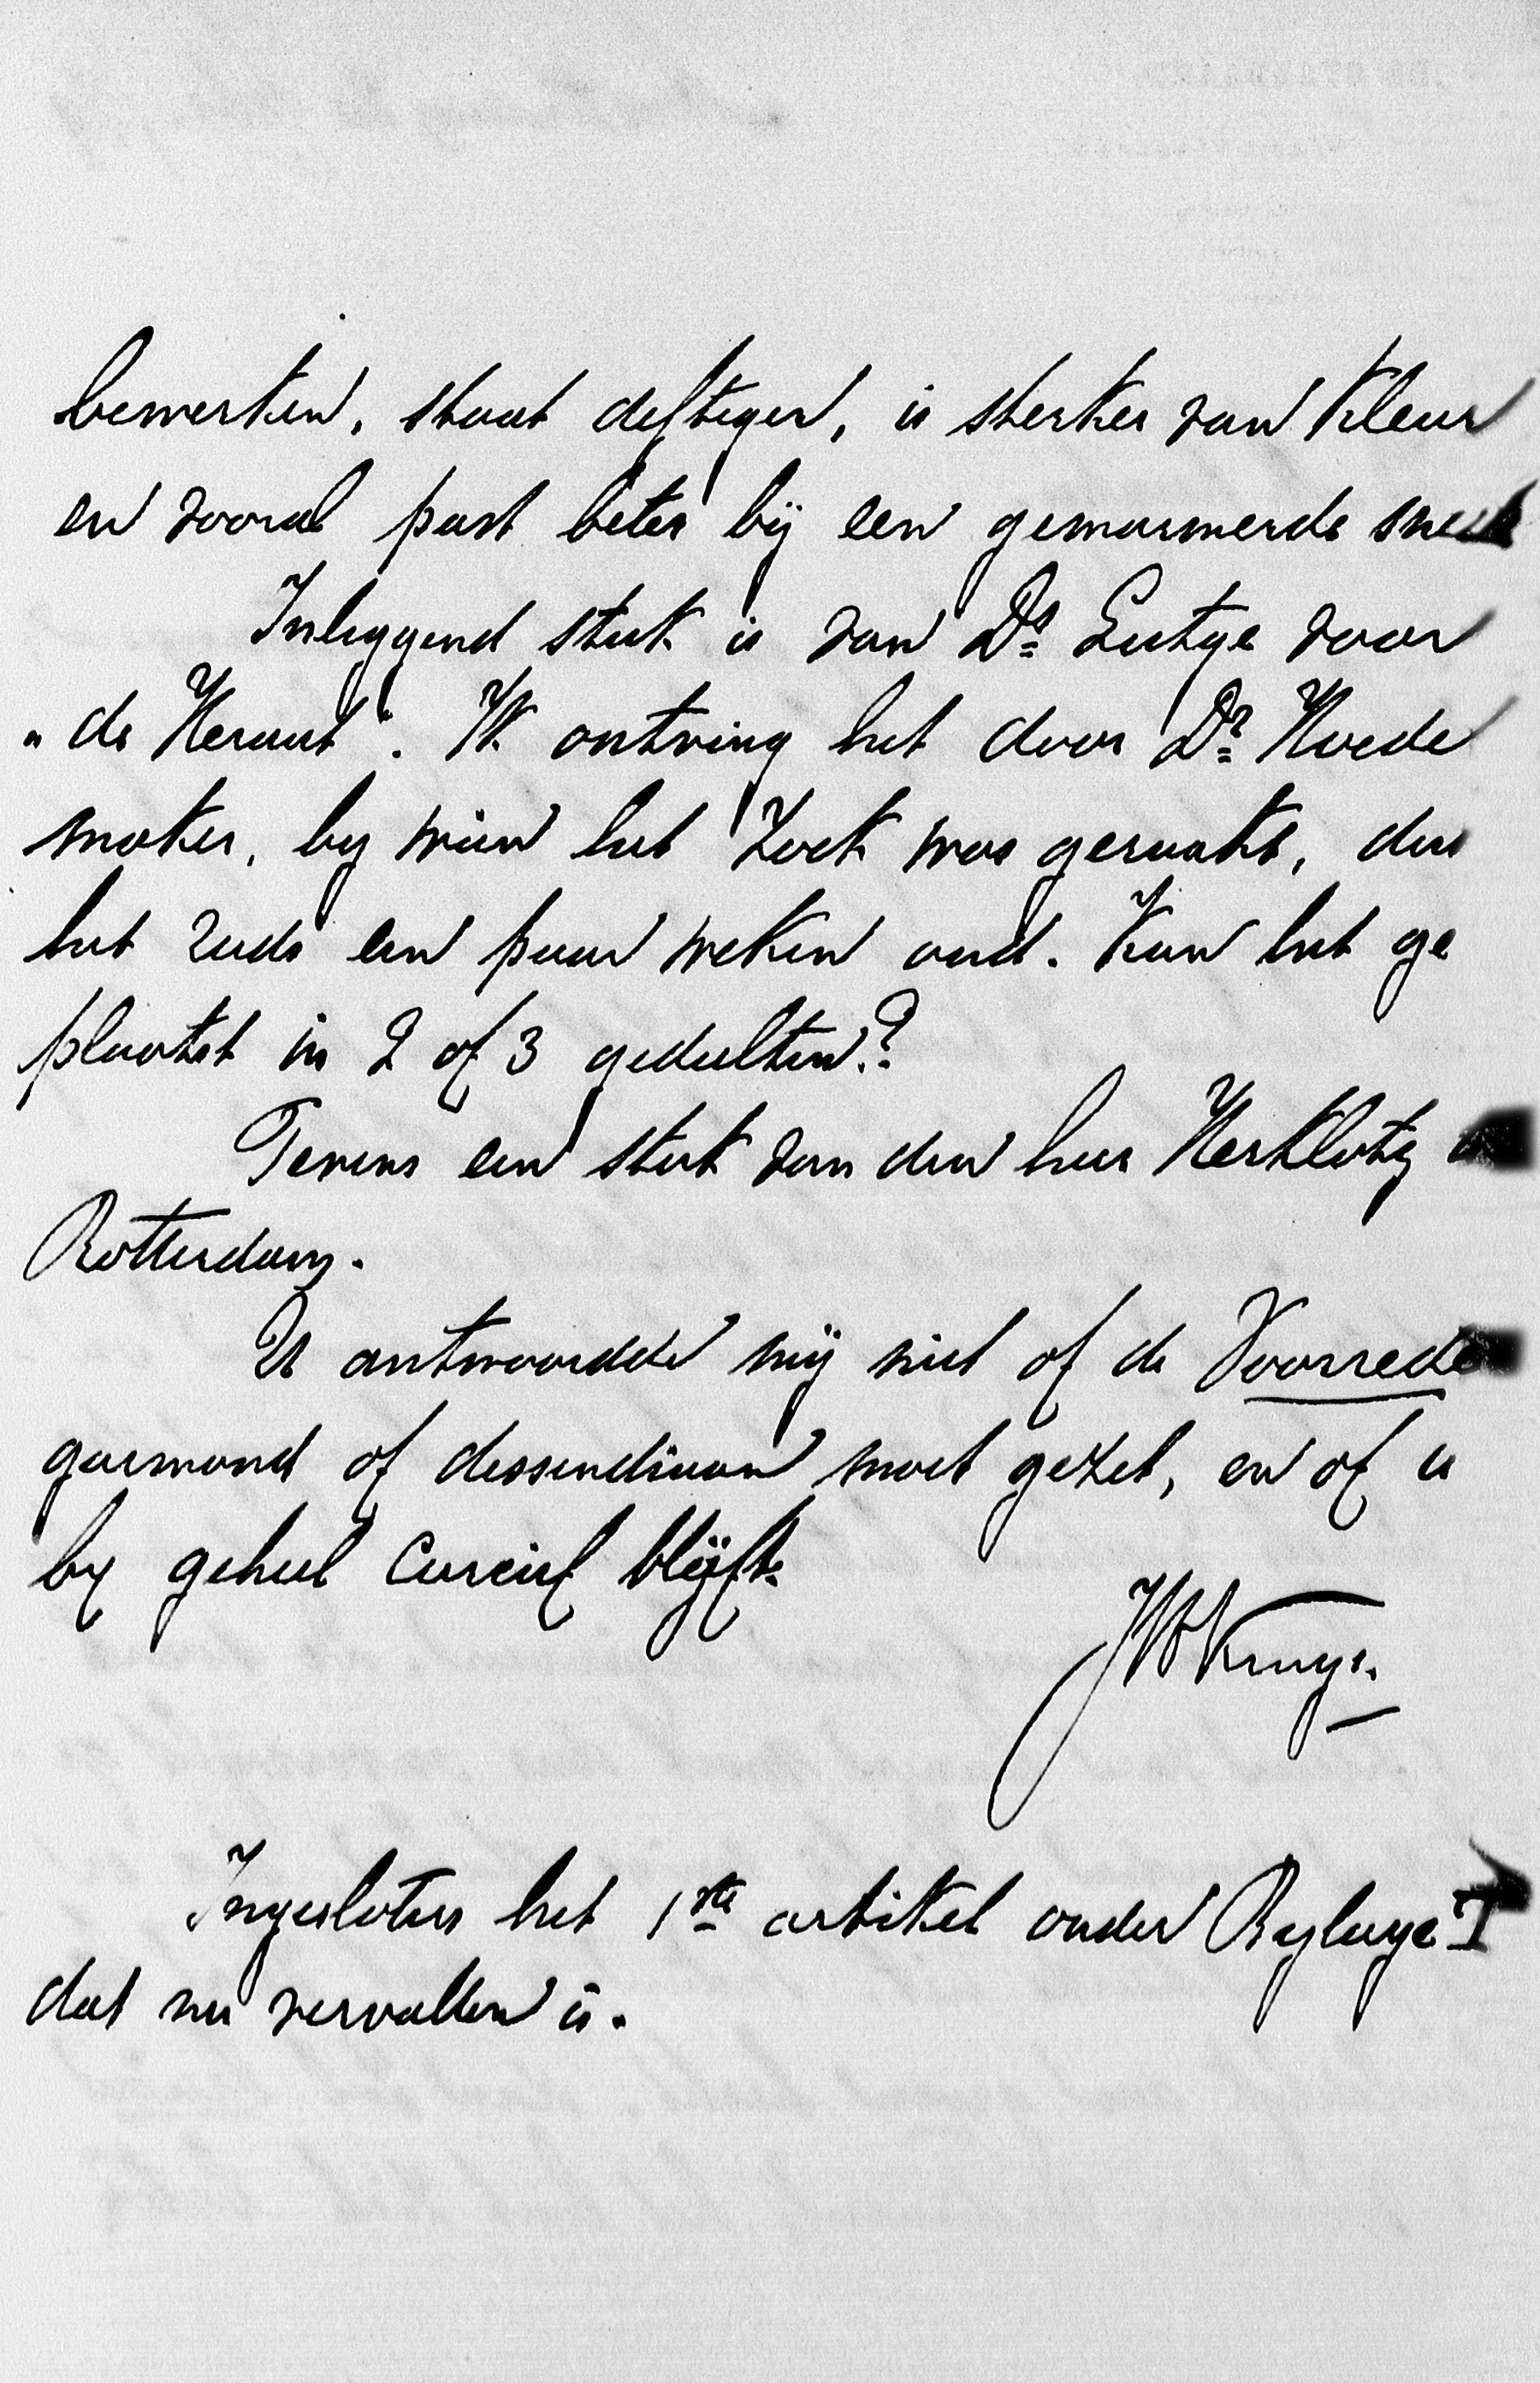 bewerken, staat deftiger, is sterker van kleur
en vooral past beter bij een gemarmerde snede
Inliggend stuk is van Ds Lutge voor
"de Heraut". Ik ontving het door Dr Hoede
maker, by wien het zoek was geraakt, dus
het reeds een paar weken oud. Kan het ge
plaatst in 2 of 3 gedeelten?
Tevens een stuk van den heer Herklotz
Rotterdam.
U antwoordde mij niet of de Voorrede
garmond of dessendiaan moet gezet, en of u
by geheel Cursief blijft.
JHKruyt.
Ingesloten het 1ste artikel onder Bylage I
dat nu vervallen is.